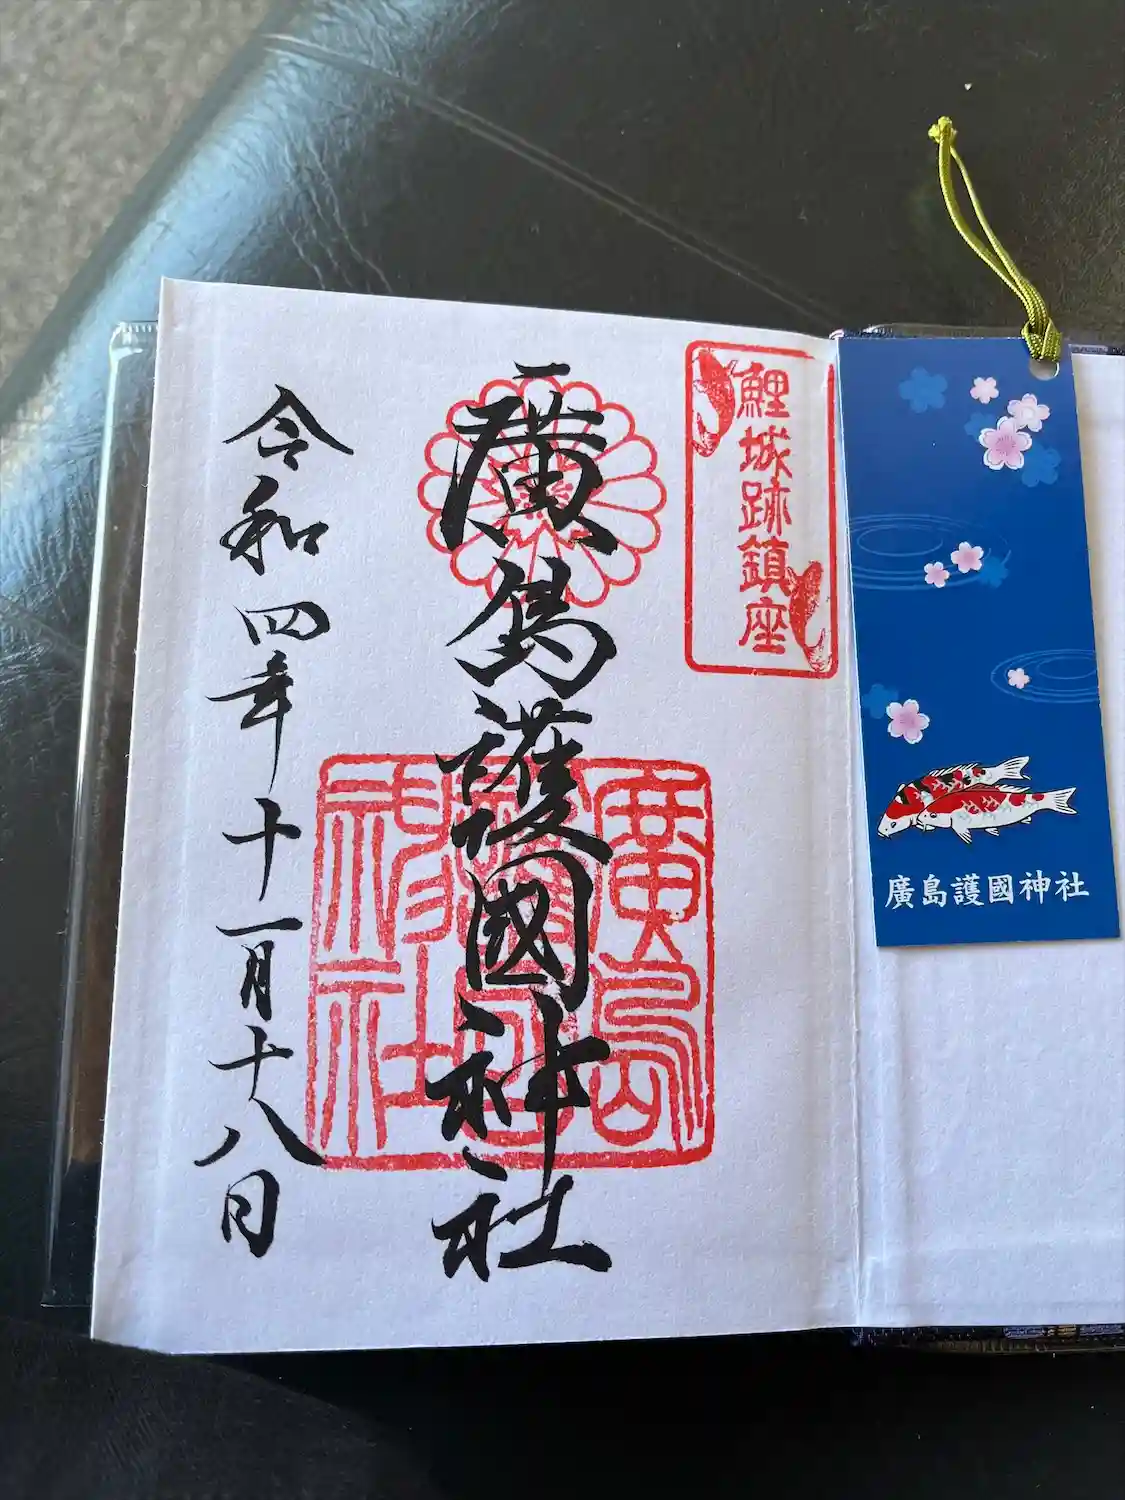 鯉城跡鎮座
廣島護國神社
令和四年十一月十八日
廣島護國神社
廣島護國神社